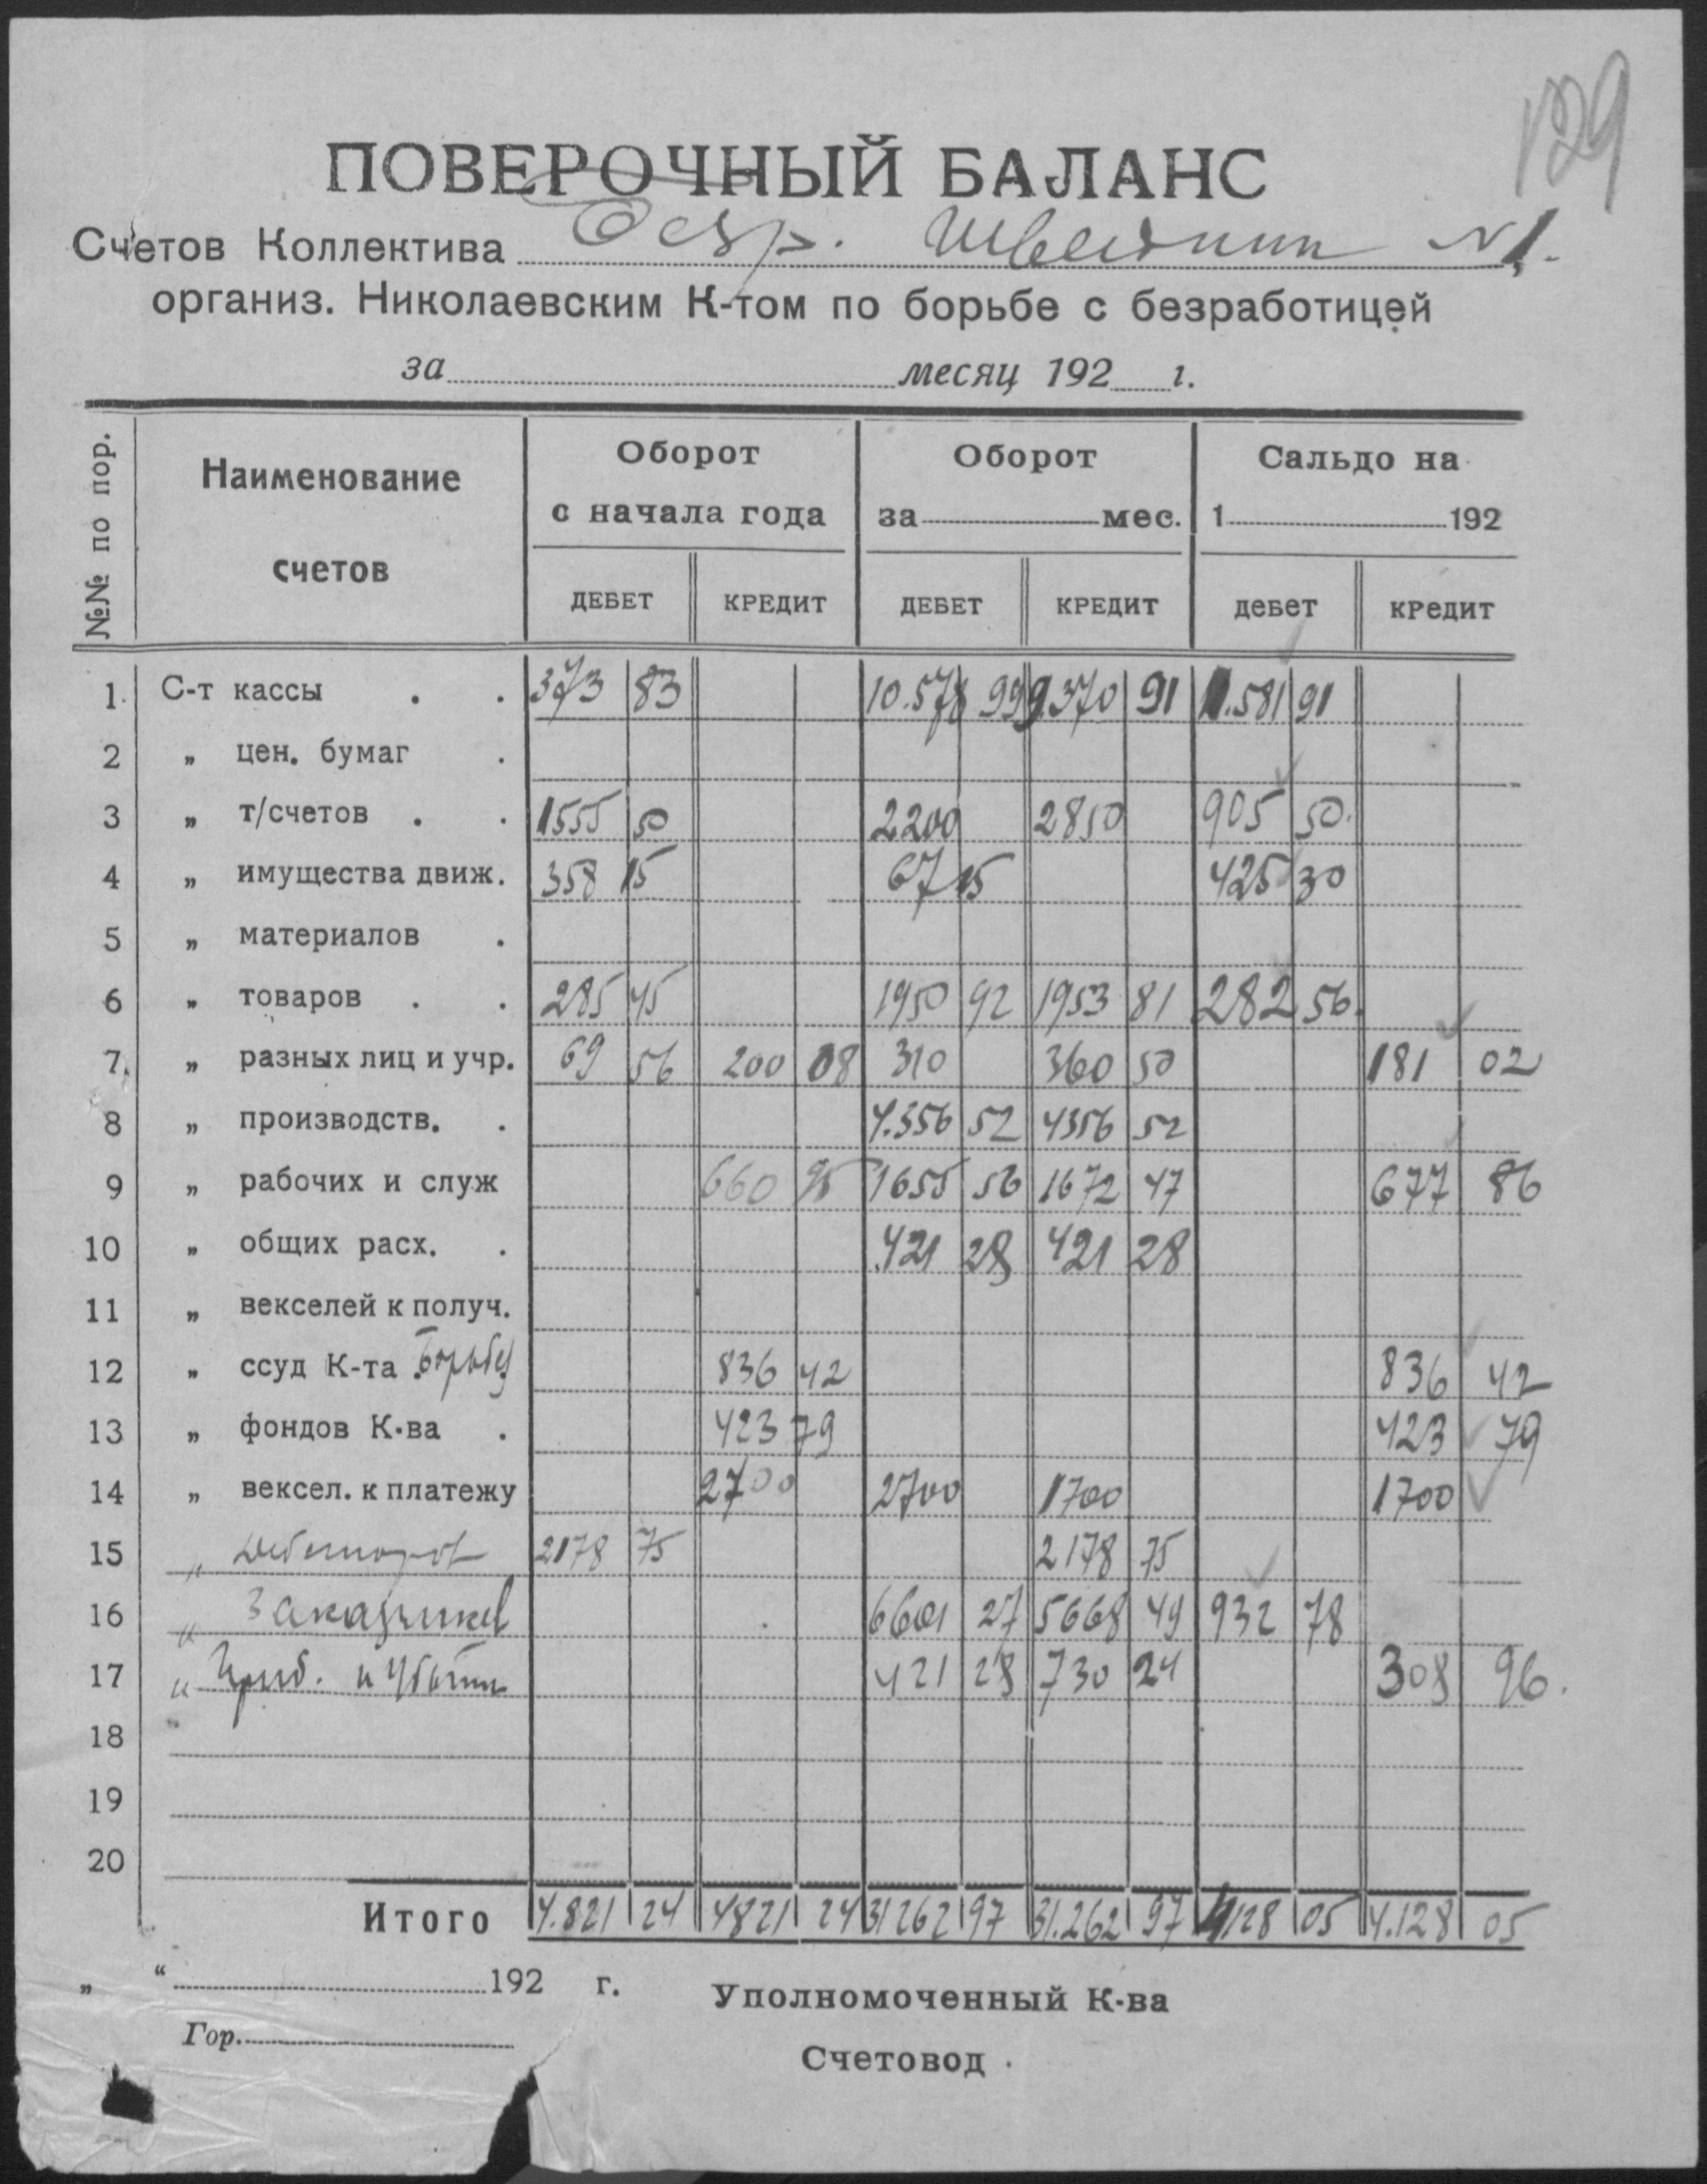 129
ПОВЕРОЧНЫЙ БАЛАНС
Счетов Коллектива Безр. Швейник №1.
организ. Николаевским К-том по борьбе с безработицей
за месяц 192 г.
№№ по пор. Наименование счетов Оборот с начала года Оборот за мес. Сальдо на 1 192
ДЕБЕТ КРЕДИТ ДЕБЕТ КРЕДИТ дебет кредит
1 С-т кассы . . 373 83 10.578 99 9.370 91 1.581 91
2 „ цен. бумаг .
3 „ т/счетов . . 1555 50 2200 2850 905 50.
4 „ имущества движ. 358 15 67 15 425 30
5 „ материалов .
6 „ товаров . . 285 45 1950 92 1953 81 282 56.
7 „ разных лиц и учр. 69 56 200 08 310 360 50 181 02
8 „ производств. . 4.356 52 4356 52
9 „ рабочих и служ 660 95 1655 56 1672 47 677 86
10 „ общих расх. . 421 28 421 28
11 „ векселей к получ.
12 „ ссуд К-та Борьбы 836 42 836 42
13 „ фондов К-ва . 423 79 423 79
14 „ вексел. к платежу 2700 2700 1700 1700
15 „ Дебиторов 2178 75 2178 75
16 „ Заказчиков 6601 27 5668 49 932 78
17 „ Приб. и Убытки 421 28 730 24 308 96.
18
19
20
Итого 4.821 24 4821 24 31262 97 31.262 97 4128 05 4.128 05
„ “ 192 г. Уполномоченный К-ва
Гор.
Счетовод